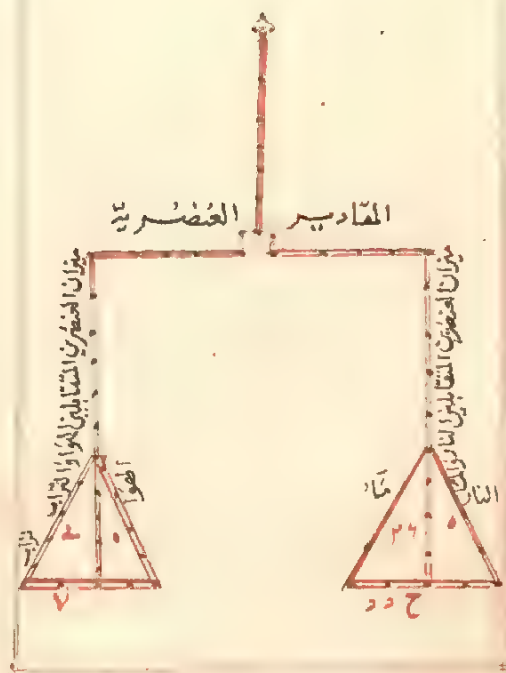 المقادير العنصرية
ميزان العنصرين المتقابلين النار والماء
ميزان العنصرين المتقابلين الهواء والتراب
النار
ماء
الهوا
تراب
٨
٣٤
٧